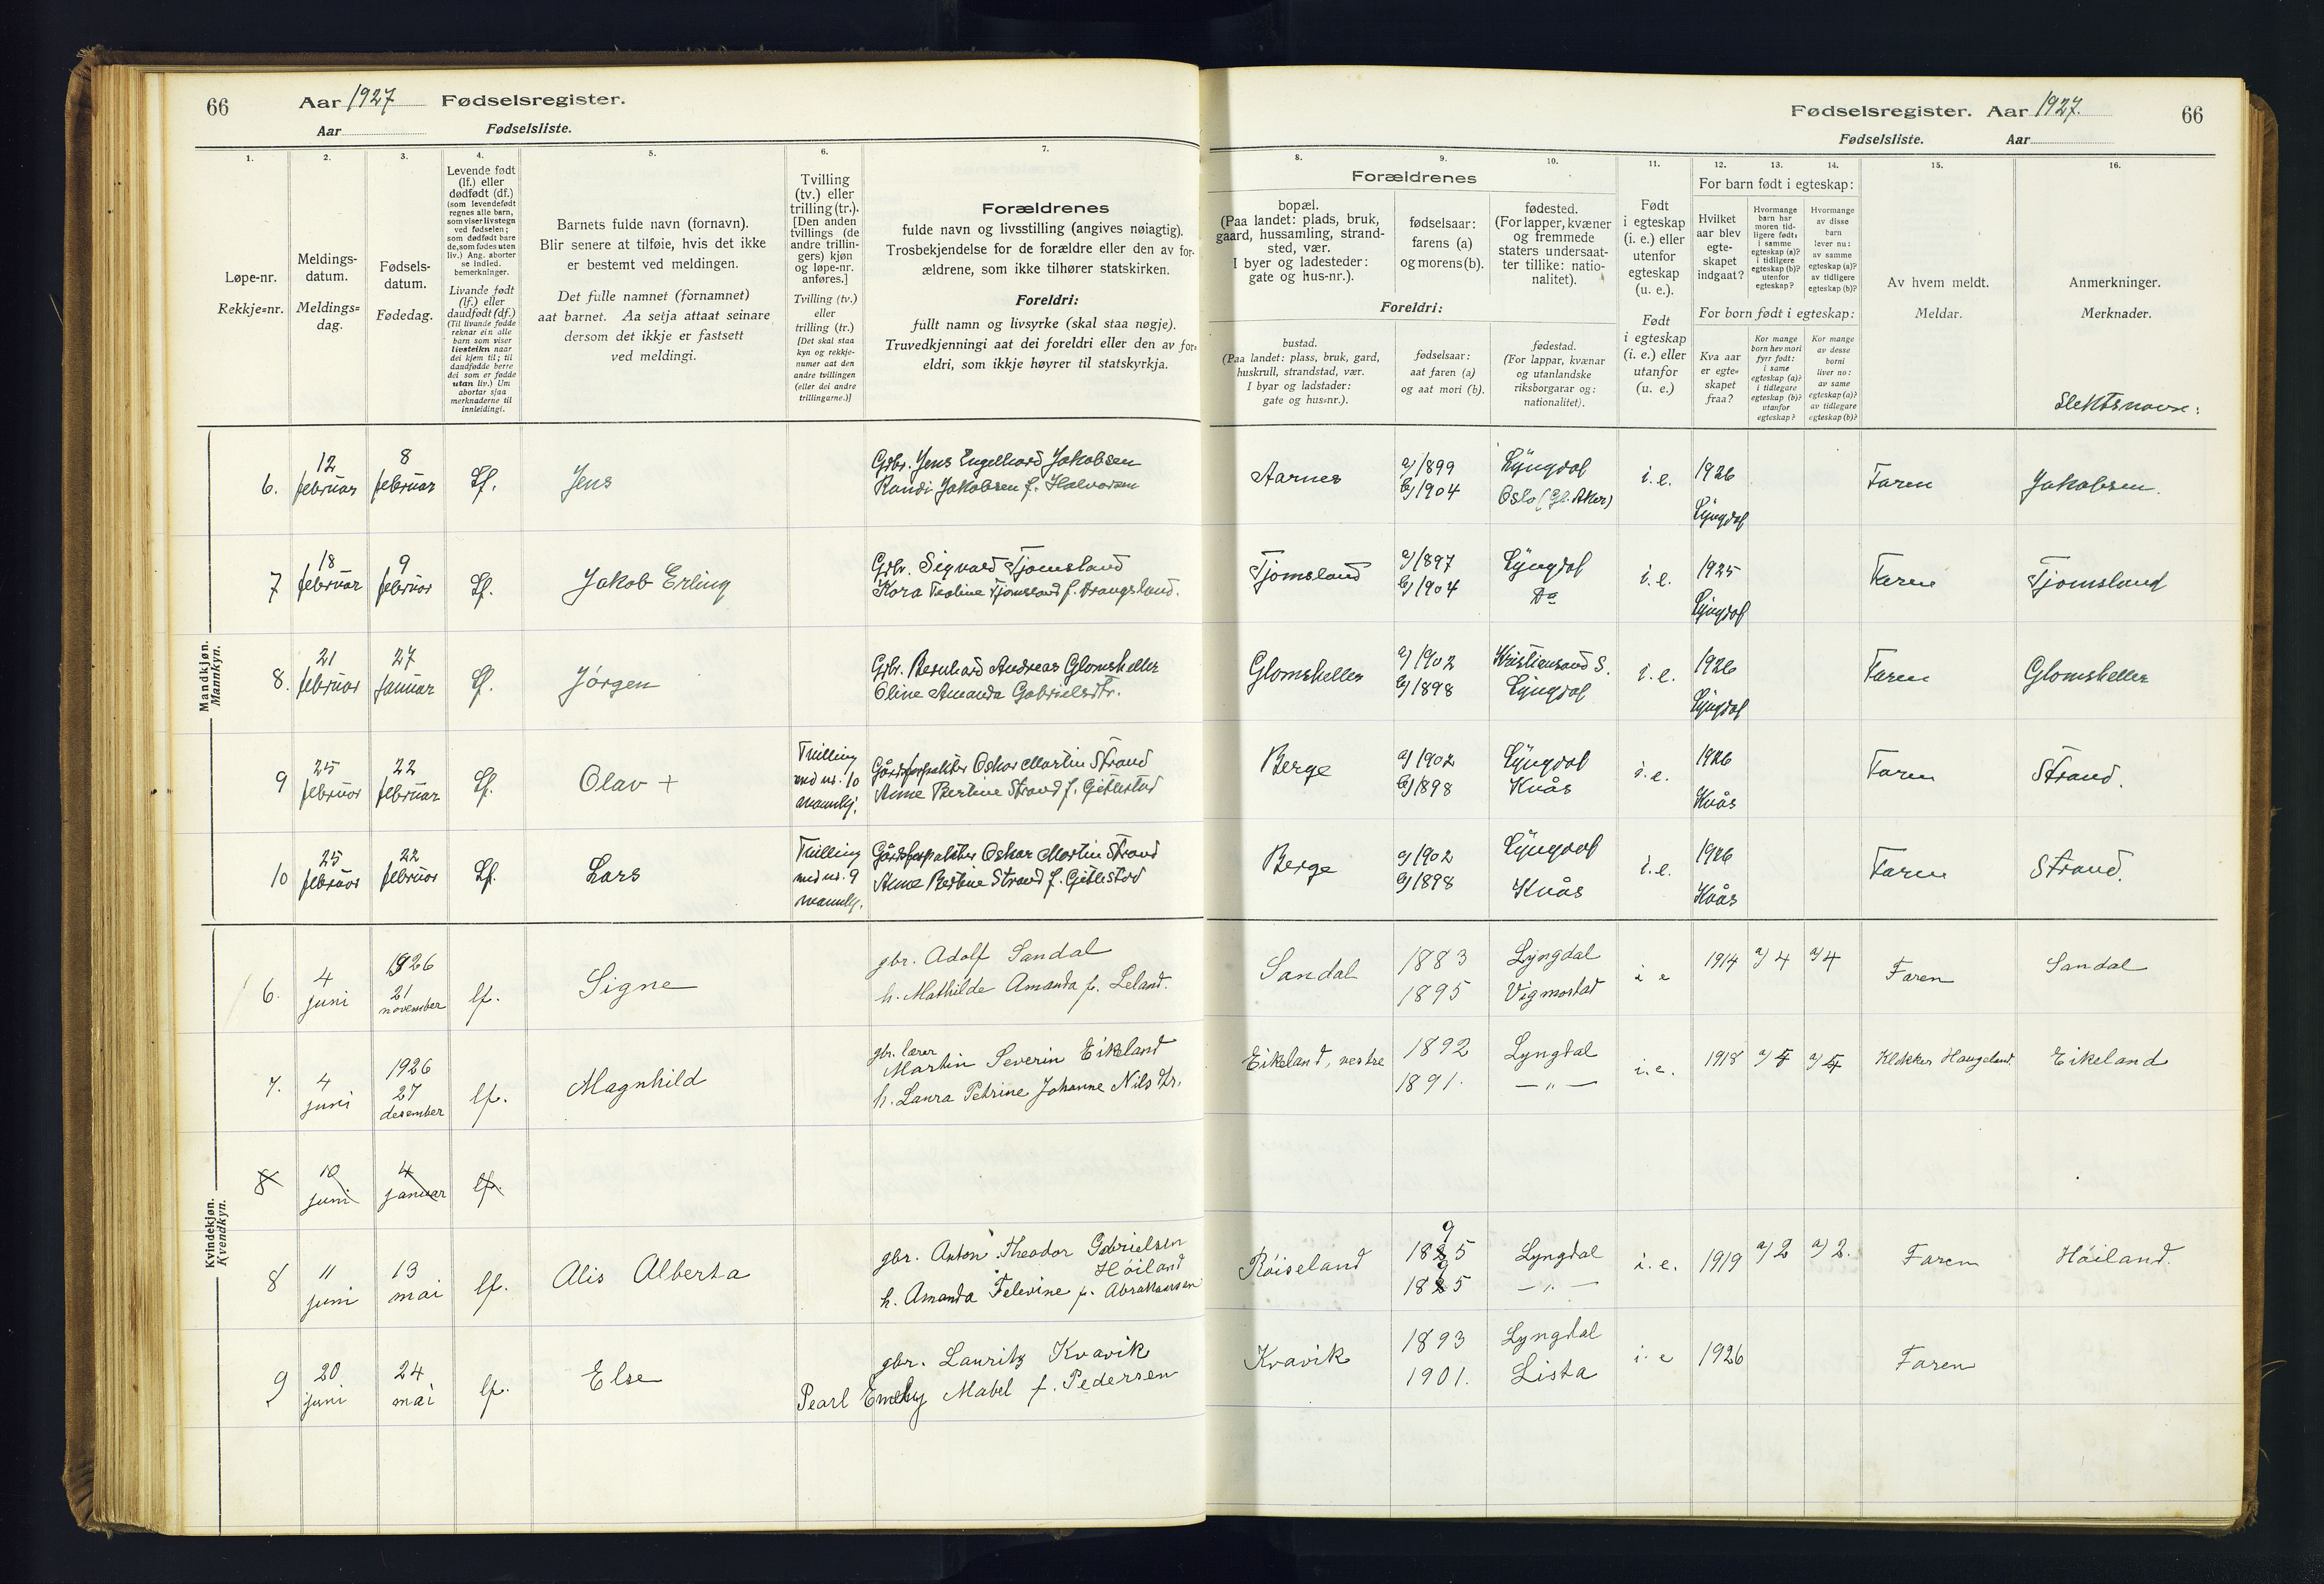 66 Aar 1927 Fødselsregister.
Aar Fødselsliste.
Fødselsregister. Aar 1927. 66
Fødselsliste. Aar
1. 2. 3. 4. 5. 6. 7.
Løpe-nr.
Rekkje=nr.
Meldings-
datum.
Meldings=
dag.
Fødsels-
datum.
Fødedag.
Levende født
(lf.) eller
dødfødt (df.)
(som levendefødt
regnes alle barn,
som viser livstegn
ved fødselen;
som dødfødt bare
de, som fødes uten
liv.) Ang. aborter
se indled.
bemerkninger.
Livande født
(lf.) eller
daudfødt (df.)
(Til livande fødde
reknar ein alle
barn som viser
livsteikn naar
dei kjem til; til
daudfødde berre
dei som er fødde
utan liv.) Um
abortar sjaa
merknaderne til
innleidingi.
Barnets fulde navn (fornavn).
Blir senere at tilføie, hvis det ikke
er bestemt ved meldingen.
Det fulle namnet (fornamnet)
aat barnet. Aa setja attaat seinare
dersom det ikkje er fastsett
ved meldingi.
Tvilling
(tv.) eller
trilling (tr.).
[Den anden
tvillings (de
andre trillin-
gers) kjøn
og løpe-nr.
anføres.]
Tvilling (tv.)
eller
trilling (tr.)
[Det skal staa
kyn og rekkje-
numer aat den
andre tvillingen
(eller dei andre
trillingarne.)]
Forældrenes
fulde navn og livsstilling (angives nøiagtig).
Trosbekjendelse for de forældre eller den av for-
ældrene, som ikke tilhører statskirken.
Foreldri:
fullt namn og livsyrke (skal staa nøgje).
Truvedkjenningi aat dei foreldri eller den av for=
eldri, som ikkje høyrer til statskyrkja.
8. 9. 10. 11. 12. 13. 14. 15. 16.
Forældrenes
bopæl.
(Paa landet: plads, bruk,
gaard, hussamling, strand-
sted, vær.
I byer og ladesteder:
gate og hus-nr.).
fødselsaar:
farens (a)
og morens (b).
fødested.
(For lapper, kvæner
og fremmede
staters undersaat-
ter tillike: natio-
nalitet).
Foreldri:
bustad.
(Paa landet: plass, bruk, gard,
huskrull, strandstad, vær.
I byar og ladstader:
gate og hus=nr.).
fødselsaar:
aat faren (a)
og aat mori (b).
fødestad.
(For lappar, kvænar
og utanlandske
riksborgarar og:
nationalitet).
Født
i egteskap
(i. e.) eller
utenfor
egteskap
(u. e.).
Født
i egteskap
(i. e.) eller
utanfor
(u. e.)
For barn født i egteskap:
Hvilket
aar blev
egte-
skapet
indgaat?
Hvormange
barn har
moren tid-
ligere født:
i samme
egteskap (a)?
i tidligere
egteskap (b)?
utenfor
egteskap?
Hvormange
av disse
barn
lever nu:
av samme
egteskap (a)?
av tidligere
egteskap (b)?
For born født i egteskap:
Kva aar
er egte=
skapet
fraa?
Kor mange
born hev mori
fyrr født:
i same
egteskap (a)?
i tidlegare
egteskap (b)?
utanfor
egteskap?
Kor mange
av desse
borni
liver no:
av same
egteskap (a)?
av tidlegare
egteskap (b)?
Av hvem meldt.
Meldar.
Anmerkninger.
Merknader.
Slektsnavn:
Mandkjøn.
Mannkyn.
6. 12 februar 8 februar Lf. Jens Gbr. Jens Engelhard Jakobsen
Randi Jakobsen f. Halvorsen
Aarnes a) 1899 b) 1904 Lyngdal Oslo (Gl. Aker) i. e. 1926 Lyngdal Faren Jakobsen.
7 18 februar 9 februar Lf. Jakob Erling Gbr. Sigvard Tjomsland
Kora Teoline Tjomsland f. Drangsland.
Tjomsland a) 1897 b) 1904 Lyngdal Do i. e. 1925 Lyngdal Faren Tjomsland
8. 21 februar 27 januar Lf. Jørgen Gbr. Bernhard Andreas Glomsheller
Oline Amanda Gabrielsdtr.
Glomsheller a) 1902 b) 1898 Kristiansand S. Lyngdal i. e. 1926 Lyngdal Faren Glomsheller
9 25 februar 22 februar Lf. Olav + Tvilling med nr. 10 mannkj. Gårdsforpakter Oskar Martin Strand
Anne Bertine Strand f. Gitlestad
Berge a) 1902 b) 1898 Lyngdal Kvås i. e. 1926 Kvås Faren Strand.
10 25 februar 22 februar Lf. Lars Tvilling med nr. 9 mannkj. Gårdsforpakter Oskar Martin Strand
Anne Bertine Strand f. Gitlestad
Berge a) 1902 b) 1898 Lyngdal Kvås i. e. 1926 Kvås Faren Strand.
Kvindekjøn.
Kvendkyn.
6. 4 juni 1926 21 november lf. Signe gbr. Adolf Sandal
h. Mathilde Amanda f. Leland.
Sandal 1883 1895 Lyngdal Vigmostad i e 1914 a) 4 a) 4 Faren Sandal
7. 4 juni 1926 27 desember lf. Magnhild gbr. lærer
Martin Severin Eikeland
h. Laura Petrine Johanne Nilsdtr.
Eikeland, vestre 1892 1891. Lyngdal — " — i. e. 1918 a) 5 a) 5 Klokker Haugeland Eikeland
8 10 juni 4 januar lf.
8 11 juni 13 mai lf. Alis Alberta gbr. Anton Theodor Gabrielsen
Høiland
h. Amanda Televine f. Abrahamsen
Røiseland 1895 1895 Lyngdal — " — i. e. 1919 a) 2 a) 2. Faren Høiland.
9 20 juni 24 mai lf. Else gbr. Lauritz Kvavik
Pearl Emely Mabel f. Pedersen
Kvavik 1893 1901. Lyngdal Lista i. e 1926 Faren